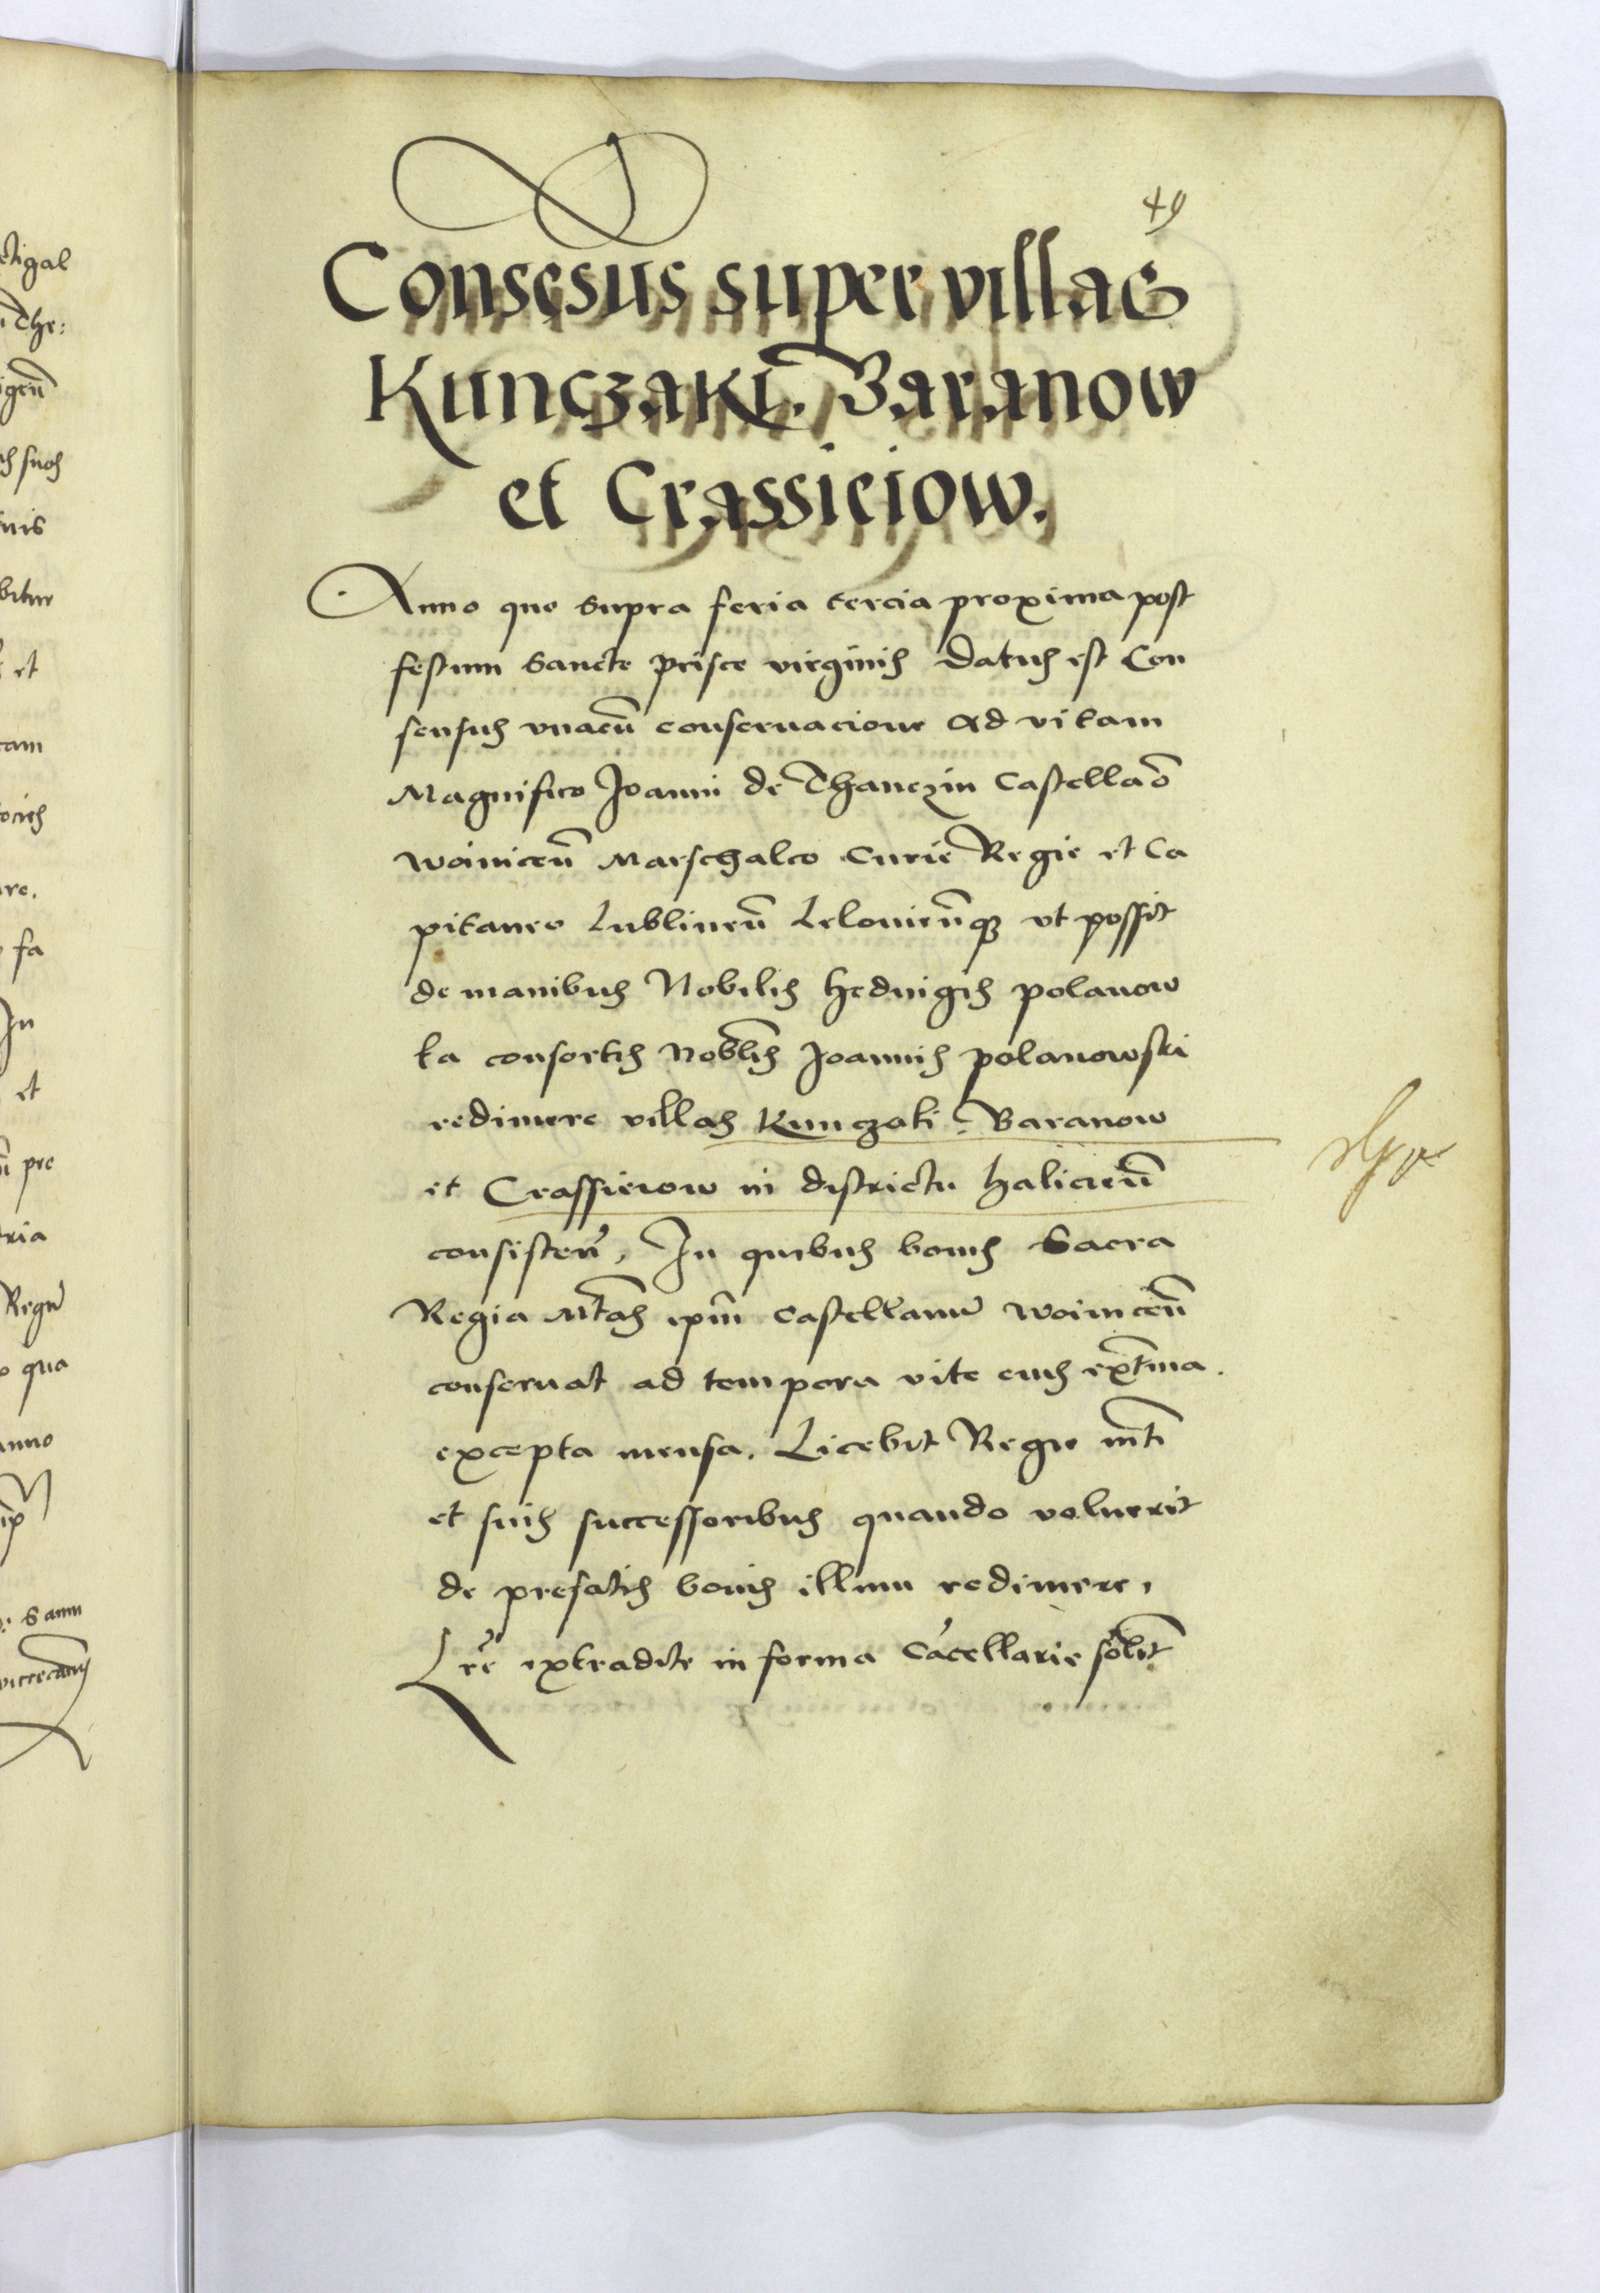 49
Consesus super villas
Kunczaki. Baranow
et Crassieiow.
Anno quo supra feria tercia proxima post
festum Sancte prisce virginis datus est Con
sensus vnacū conseruacione ad vitam
Magnifico Joanni de Thanczin Castellaō
woinicen̄ Marschalco Curie Regie et Ca
pitaneo Lublinen̄ Lelouien̄q ut possit
de manibus Nobilis heduigis polanow
ka consortis Noblis̄ Joannis polanowski
redimere villas Kunczaki. Baranow
et Crassieiow in districtu halicien̄
consisten̄, In quibus bonis Sacra
Regia Mtas̄ ipm̄ Castellanū woinicen̄
conseruat ad tempora vite eius extm̄a.
excepta mensa. Licebit Regie mtī
et suis successoribus quando voluerit
de prefatis bonis illum redimere,
Lrē extradite in forma Cācellarie solit̄
etigal
The:
igen̄
suos
nis
bitur
et
tam
ocies
re.
fa
In
et
pre
tria
Regū
qua
anno
: Sann
vicecan